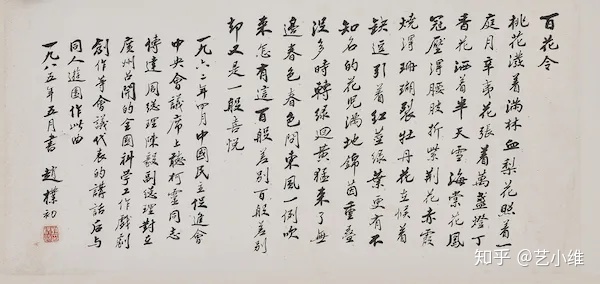 百花令
桃花濺着滿林血梨花照着一
庭月辛夷花張着萬盞燈丁
香花洒着半天雪海棠花鳳
冠壓得腰肢折紫荆花赤霞
燒得珊瑚裂牡丹花立候着
缺逗引着紅莖綠葉更有不
知名的花兒滿地錦茵重疊
没多時轉綠迴黃猛來了無
邊春色春色問東風一例吹
來怎有這百般差别百般差别
却又是一般喜悦
一九六二年四月中國民主促進會
中央會議席上聽柯靈同志
傳達周總理陳毅副總理對在
廣州召開的全國科學工作戲劇
創作等會議代表的講話后与
同人遊園作此曲
一九八五年五月書 趙樸初
知乎 @艺小维